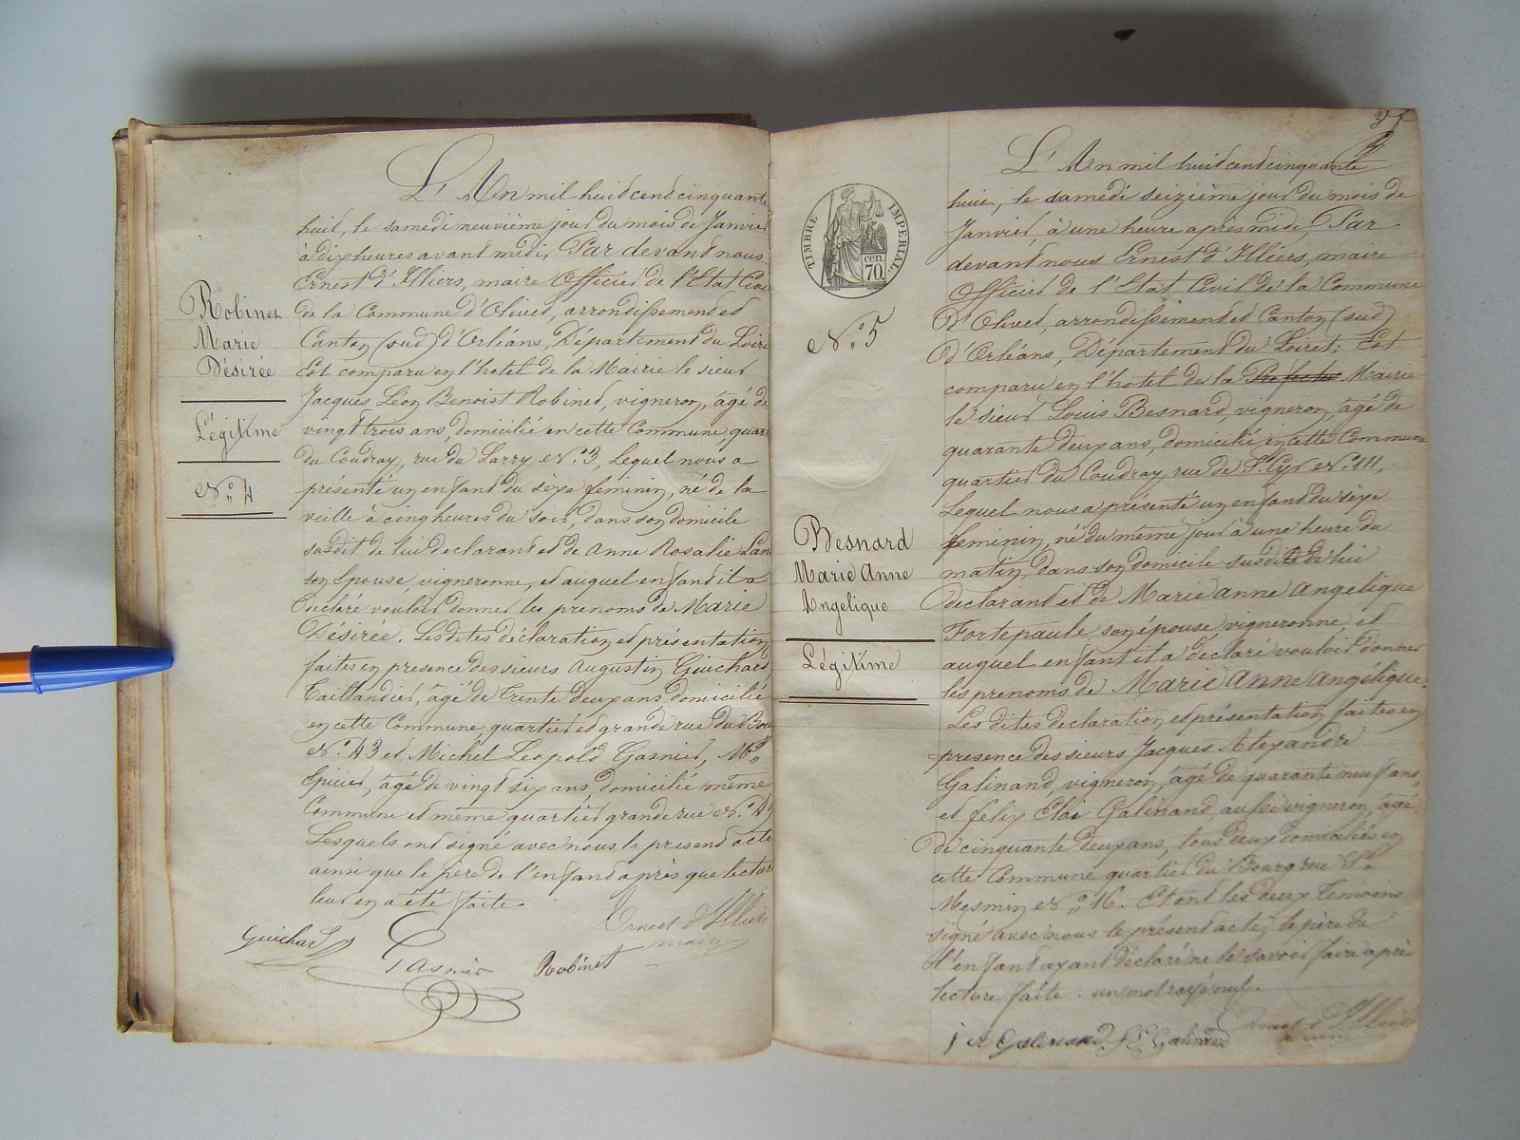 Robinet
Marie
Désirée
Légitime
N.° 4
L'An mil huit cent cinquante
huit, le samedi neuvième jour du mois de Janvier
à dix heures avant midi, Par devant nous
Ernest d'Illiers, maire Officier de l'Etat Civil
de la Commune d'Olivet, arrondissement et
Canton (sud) d'Orléans, Département du Loiret
Est comparu en l'hotel de la Mairie le sieur
Jacques Léon Benoist Robinet, vigneron, âgé de
vingt trois ans, domicilié en cette Commune, quart
du Coudray, rue du Larry N.° 3, Lequel nous a
présenté un enfant du sexe féminin, né de la
veille à cinq heures du soir, dans son domicile
susdit de lui déclarant et de Anne Rosalie
son épouse, vigneronne, et auquel enfant il a
déclaré vouloir donner les prenoms de Marie
Désirée. Les dites déclaration et présentation
faites en presence des sieurs Augustin Guichard
Taillandier, âgé de trente deux ans domicilié
en cette Commune quartier et grande rue du Bourg
N.° 43 et Michel Leopold Gasnier, M.d
Epicier, âgé de vingt six ans, domicilié même
Commune et même quartier grande rue N.°
Lesquels ont signé avec nous le present acte
ainsi que le père de l'enfant après que lecture
leur en a été faite.
Ernest d'Illiers
maire
Guichard Gasnier Robinet
TIMBRE IMPÉRIAL
cen.
70
N.° 5
Besnard
Marie Anne
Angelique
Légitime
L'An mil huit cent cinquante
huit, le samedi seizième jour du mois de
Janvier, à une heure après midi, Par
devant nous Ernest d'Illiers, maire
Officier de l'Etat Civil de la Commune
d'Olivet, arrondissement et Canton (sud)
d'Orléans, Département du Loiret; Est
comparu en l'hotel de la Prefectur Mairie
le sieur Louis Besnard, vigneron, âgé de
quarante deux ans, domicilié en cette Commune
quartier du Coudray, rue de S.t Cyr N.° 111,
Lequel nous a présenté un enfant du sexe
féminin, né du même jour à une heure du
matin, dans son domicile susdit de lui
déclarant et de Marie Anne Angelique
Fortepaule son épouse, vigneronne, et
auquel enfant il a déclaré vouloir donner
les prenoms de Marie Anne Angélique.
Les dites declaration et présentation faites en
presence des sieurs Jacques Alexandre
Galinand, vigneron, âgé de quarante neuf ans,
et felix Eloi Galinand, aussi vigneron, âgé
de cinquante deux ans, tous deux domiciliés en
cette Commune quartier du Bourg rue S.t
Mesmin N.° 16. Et ont les deux temoins
signé avec nous le présent acte, le père de
l'enfant ayant déclaré ne le savoir faire après
lecture faite. un mot rayé nul.
Ernest d'Illiers
maire
j a Galinand f E Galinand